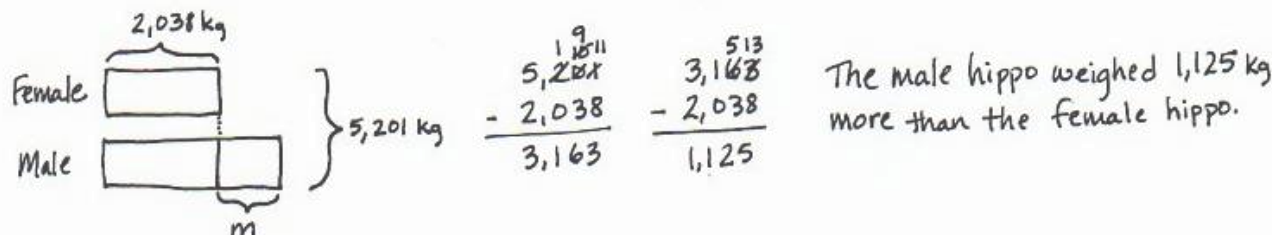 2,038 kg
Female
Male
5,201 kg
m
1 9 10 11
5,201
- 2,038
3,163
5 13
3,163
- 2,038
1,125
The male hippo weighed 1,125 kg
more than the female hippo.